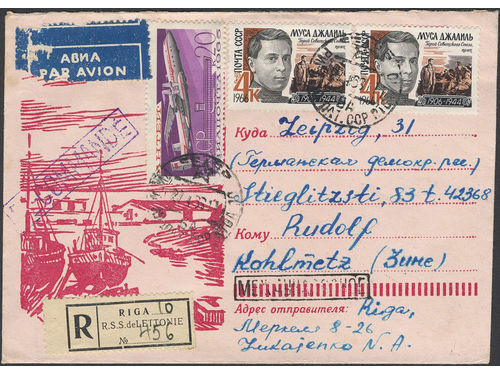 АВИА
PAR AVION
ПОЧТА СССР
МУСА ДЖАЛИЛЬ
Герой Советского Союза,
поэт
4К
1966
1906-1944
МУСА ДЖАЛИЛЬ
Герой Советского Союза,
поэт
4К
1966
1906-1944
20
Куда Leipzig, 31
(Германская демокр. рес.)
Stieglitzstr. 83 t. 42368
Кому Rudolf
Kohlmetz (Зине)
МЕЖДУНАРОДНОЕ
RIGA 10
R.S.S. de LETTONIE
R
№ 456
Адрес отправителя: Riga,
Меркеля 8-26
Lukajenko N. A.